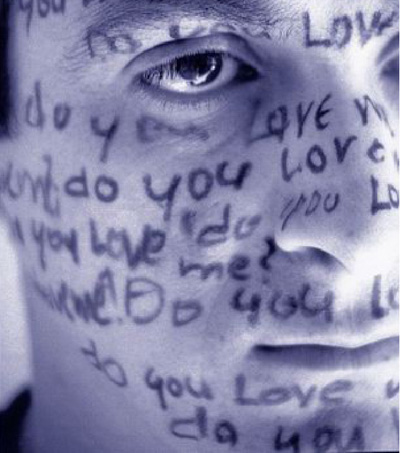 you
you Low
do you Love m
do you Love
you Lo
you Love do
me?
me! Do you Lo
do you Love
do you